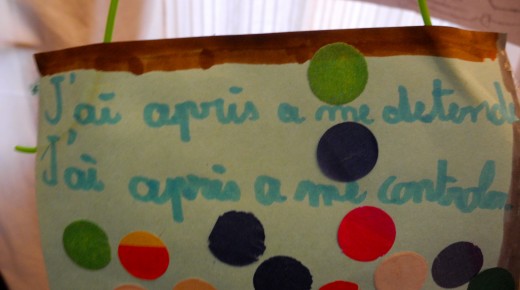 J'ai apris a me detende
J'ai apris a me controler